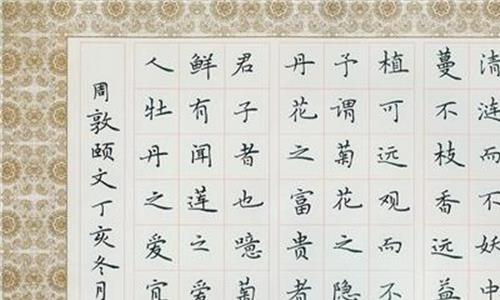 清涟而不妖中
蔓不枝香远益
植可远观而不
予谓菊花之隐
丹花之富贵者
君子者也噫菊
鲜有闻莲之爱
人牡丹之爱宜
周敦颐文丁亥冬月